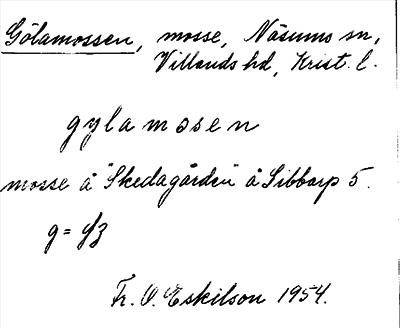 Gölamossen, mosse, Näsums sn,
Villands hd, Krist. l.
gylamosen
mosse å "Skedagården" å Sibbarp 5.
g = yz
Fr. O. Eskilson 1954.